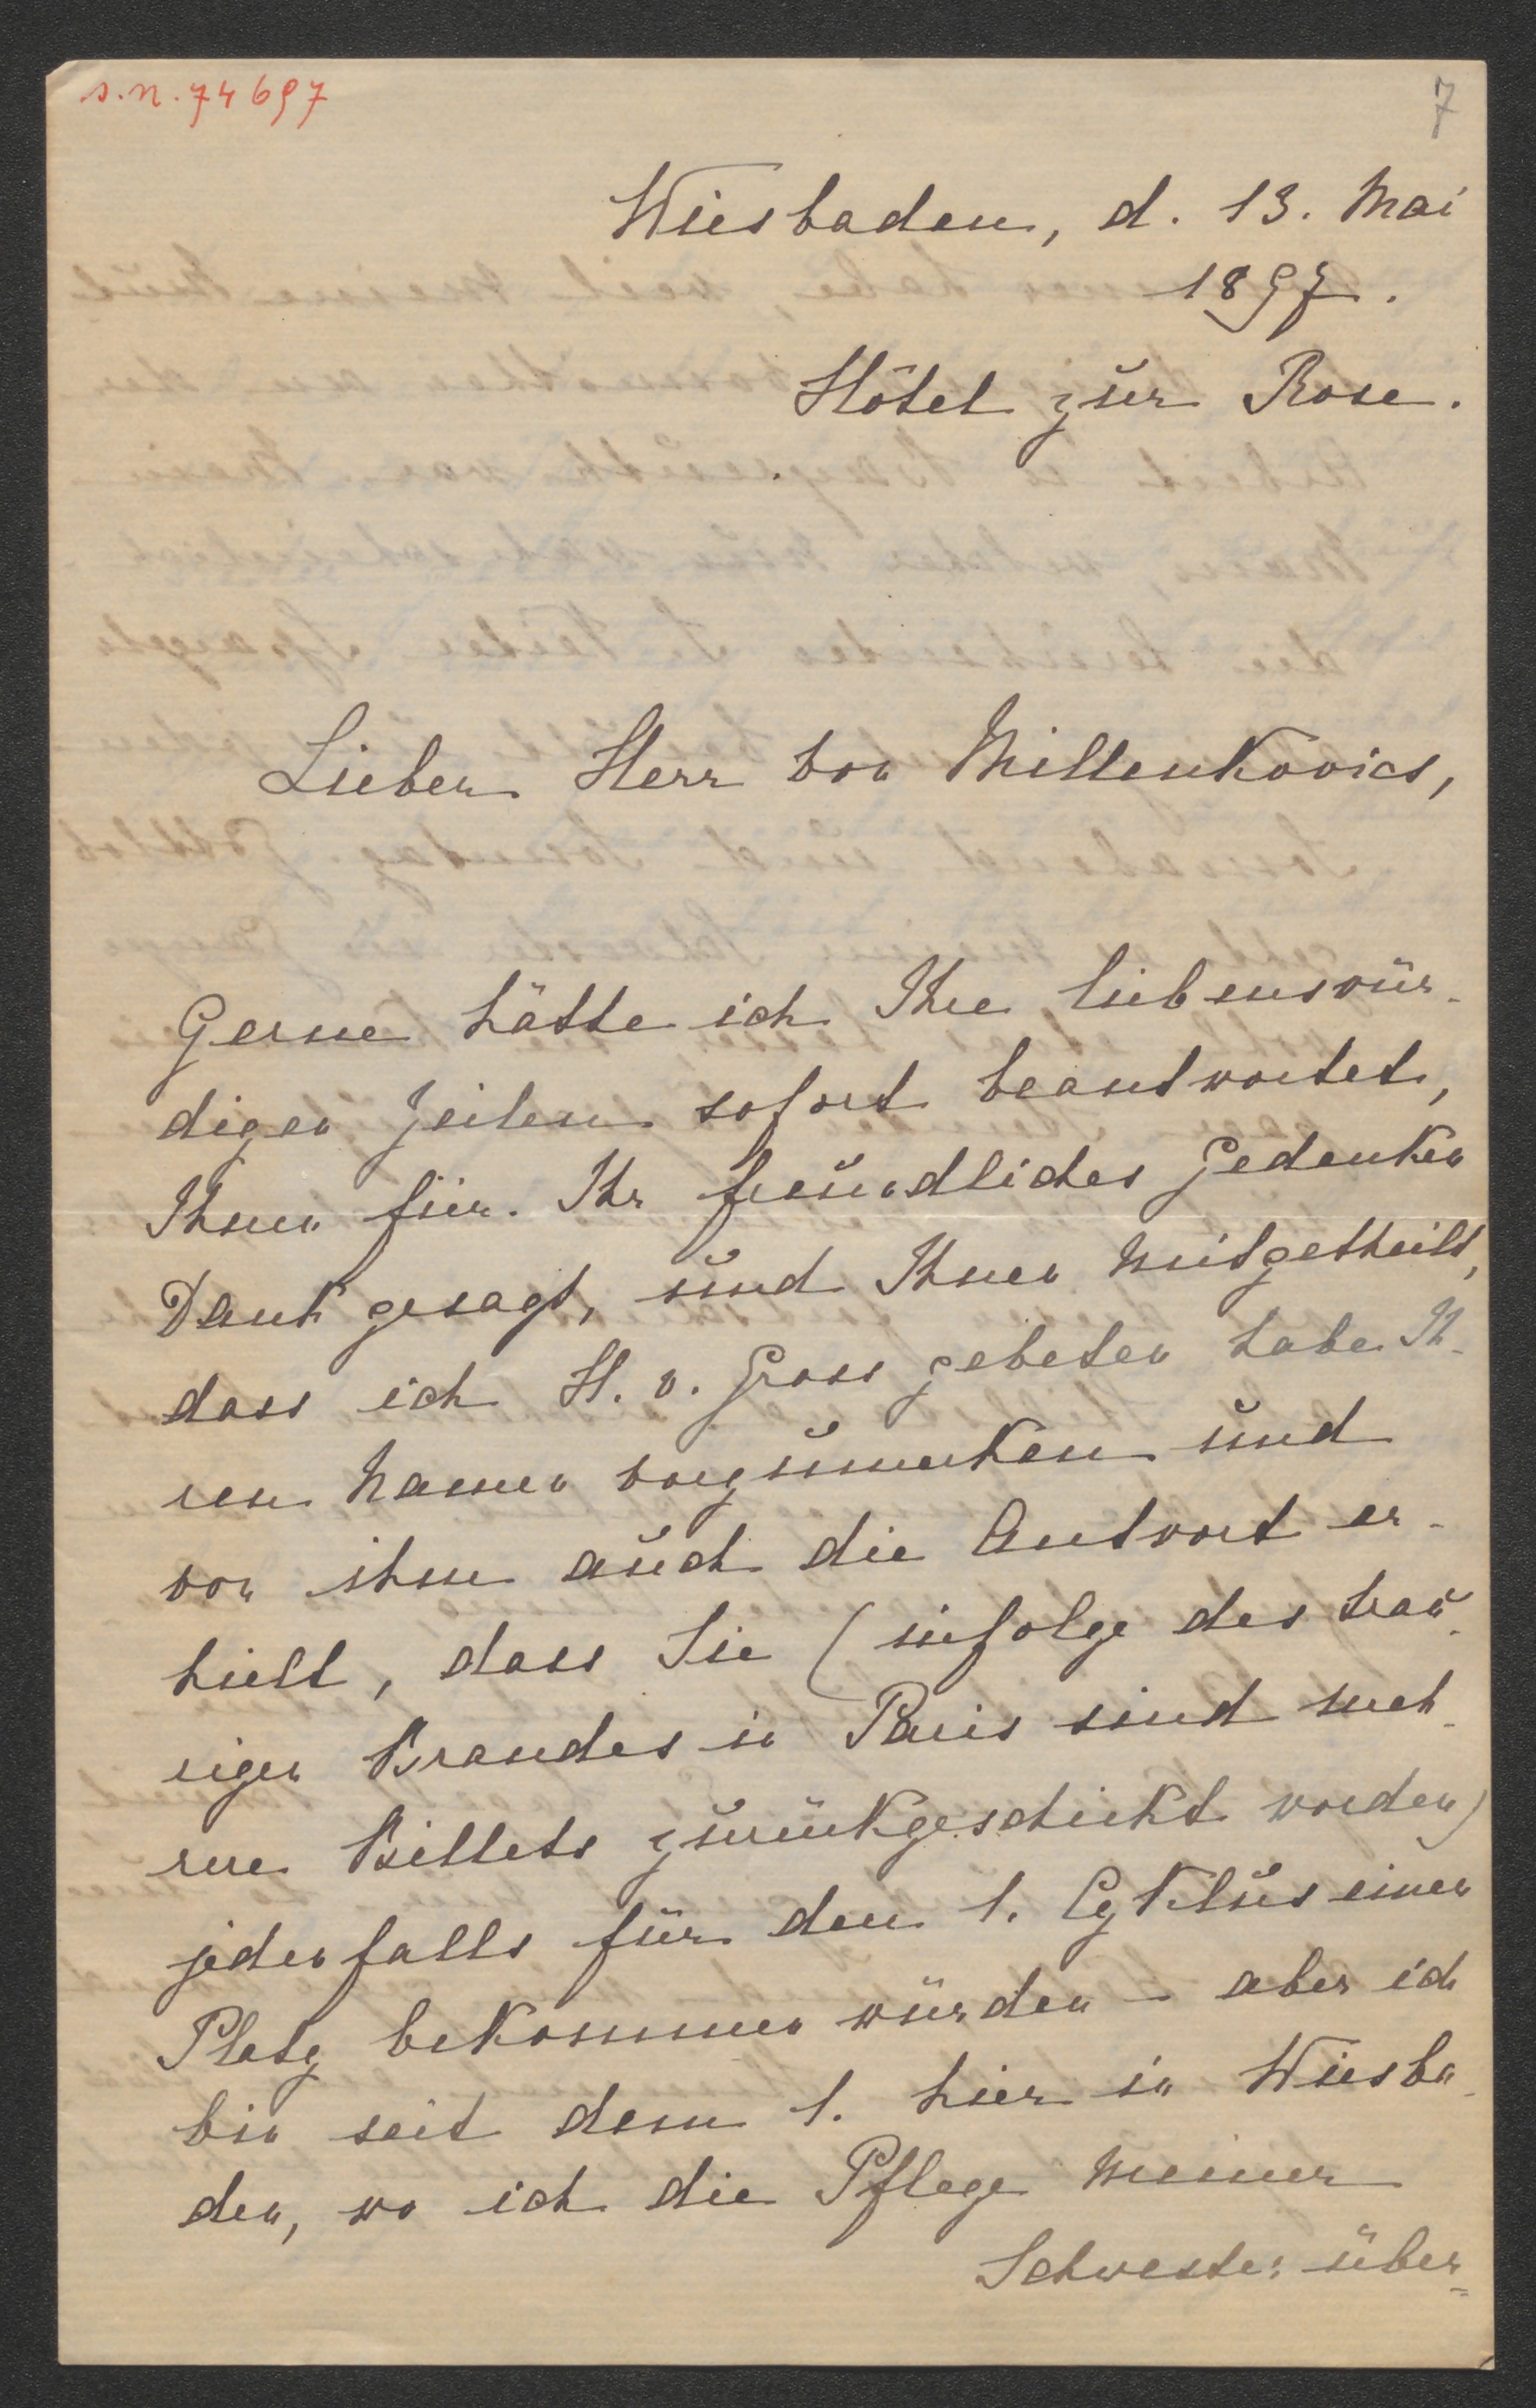 s.n. 74697
7
Wiesbaden, d. 13. Mai
1897.
Hôtel zur Rose.
Lieber Herr von Millenkovics,
Gerne hätte ich Ihre liebenswür-
digen Zeilen sofort beantwortet,
Ihnen für Ihr freundliches Gedenken
Dank gesagt, und Ihnen mitgetheilt,
dass ich H. v. Gross gebeten habe Ih-
ren Namen vorzumerken und
von ihm auch die Antwort er-
hielt, dass Sie (infolge des trau-
rigen Brandes in Paris sind meh-
rere Billets zurückgeschickt worden)
jedenfalls für den 1. Cyklus einen
Platz bekommen würden – aber ich
bin seit dem 1. hier in Wiesba-
den, wo ich die Pflege meiner
Schwester über=